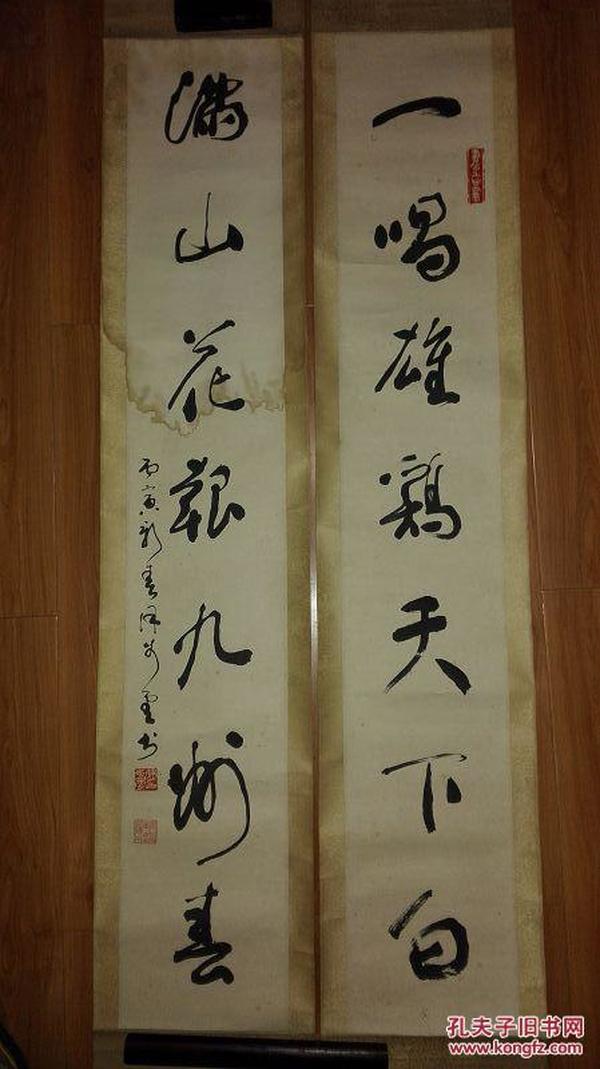 一唱雄鷄天下白
滿山花九州春
丙寅新春書
孔夫子旧书网
www.kongfz.com